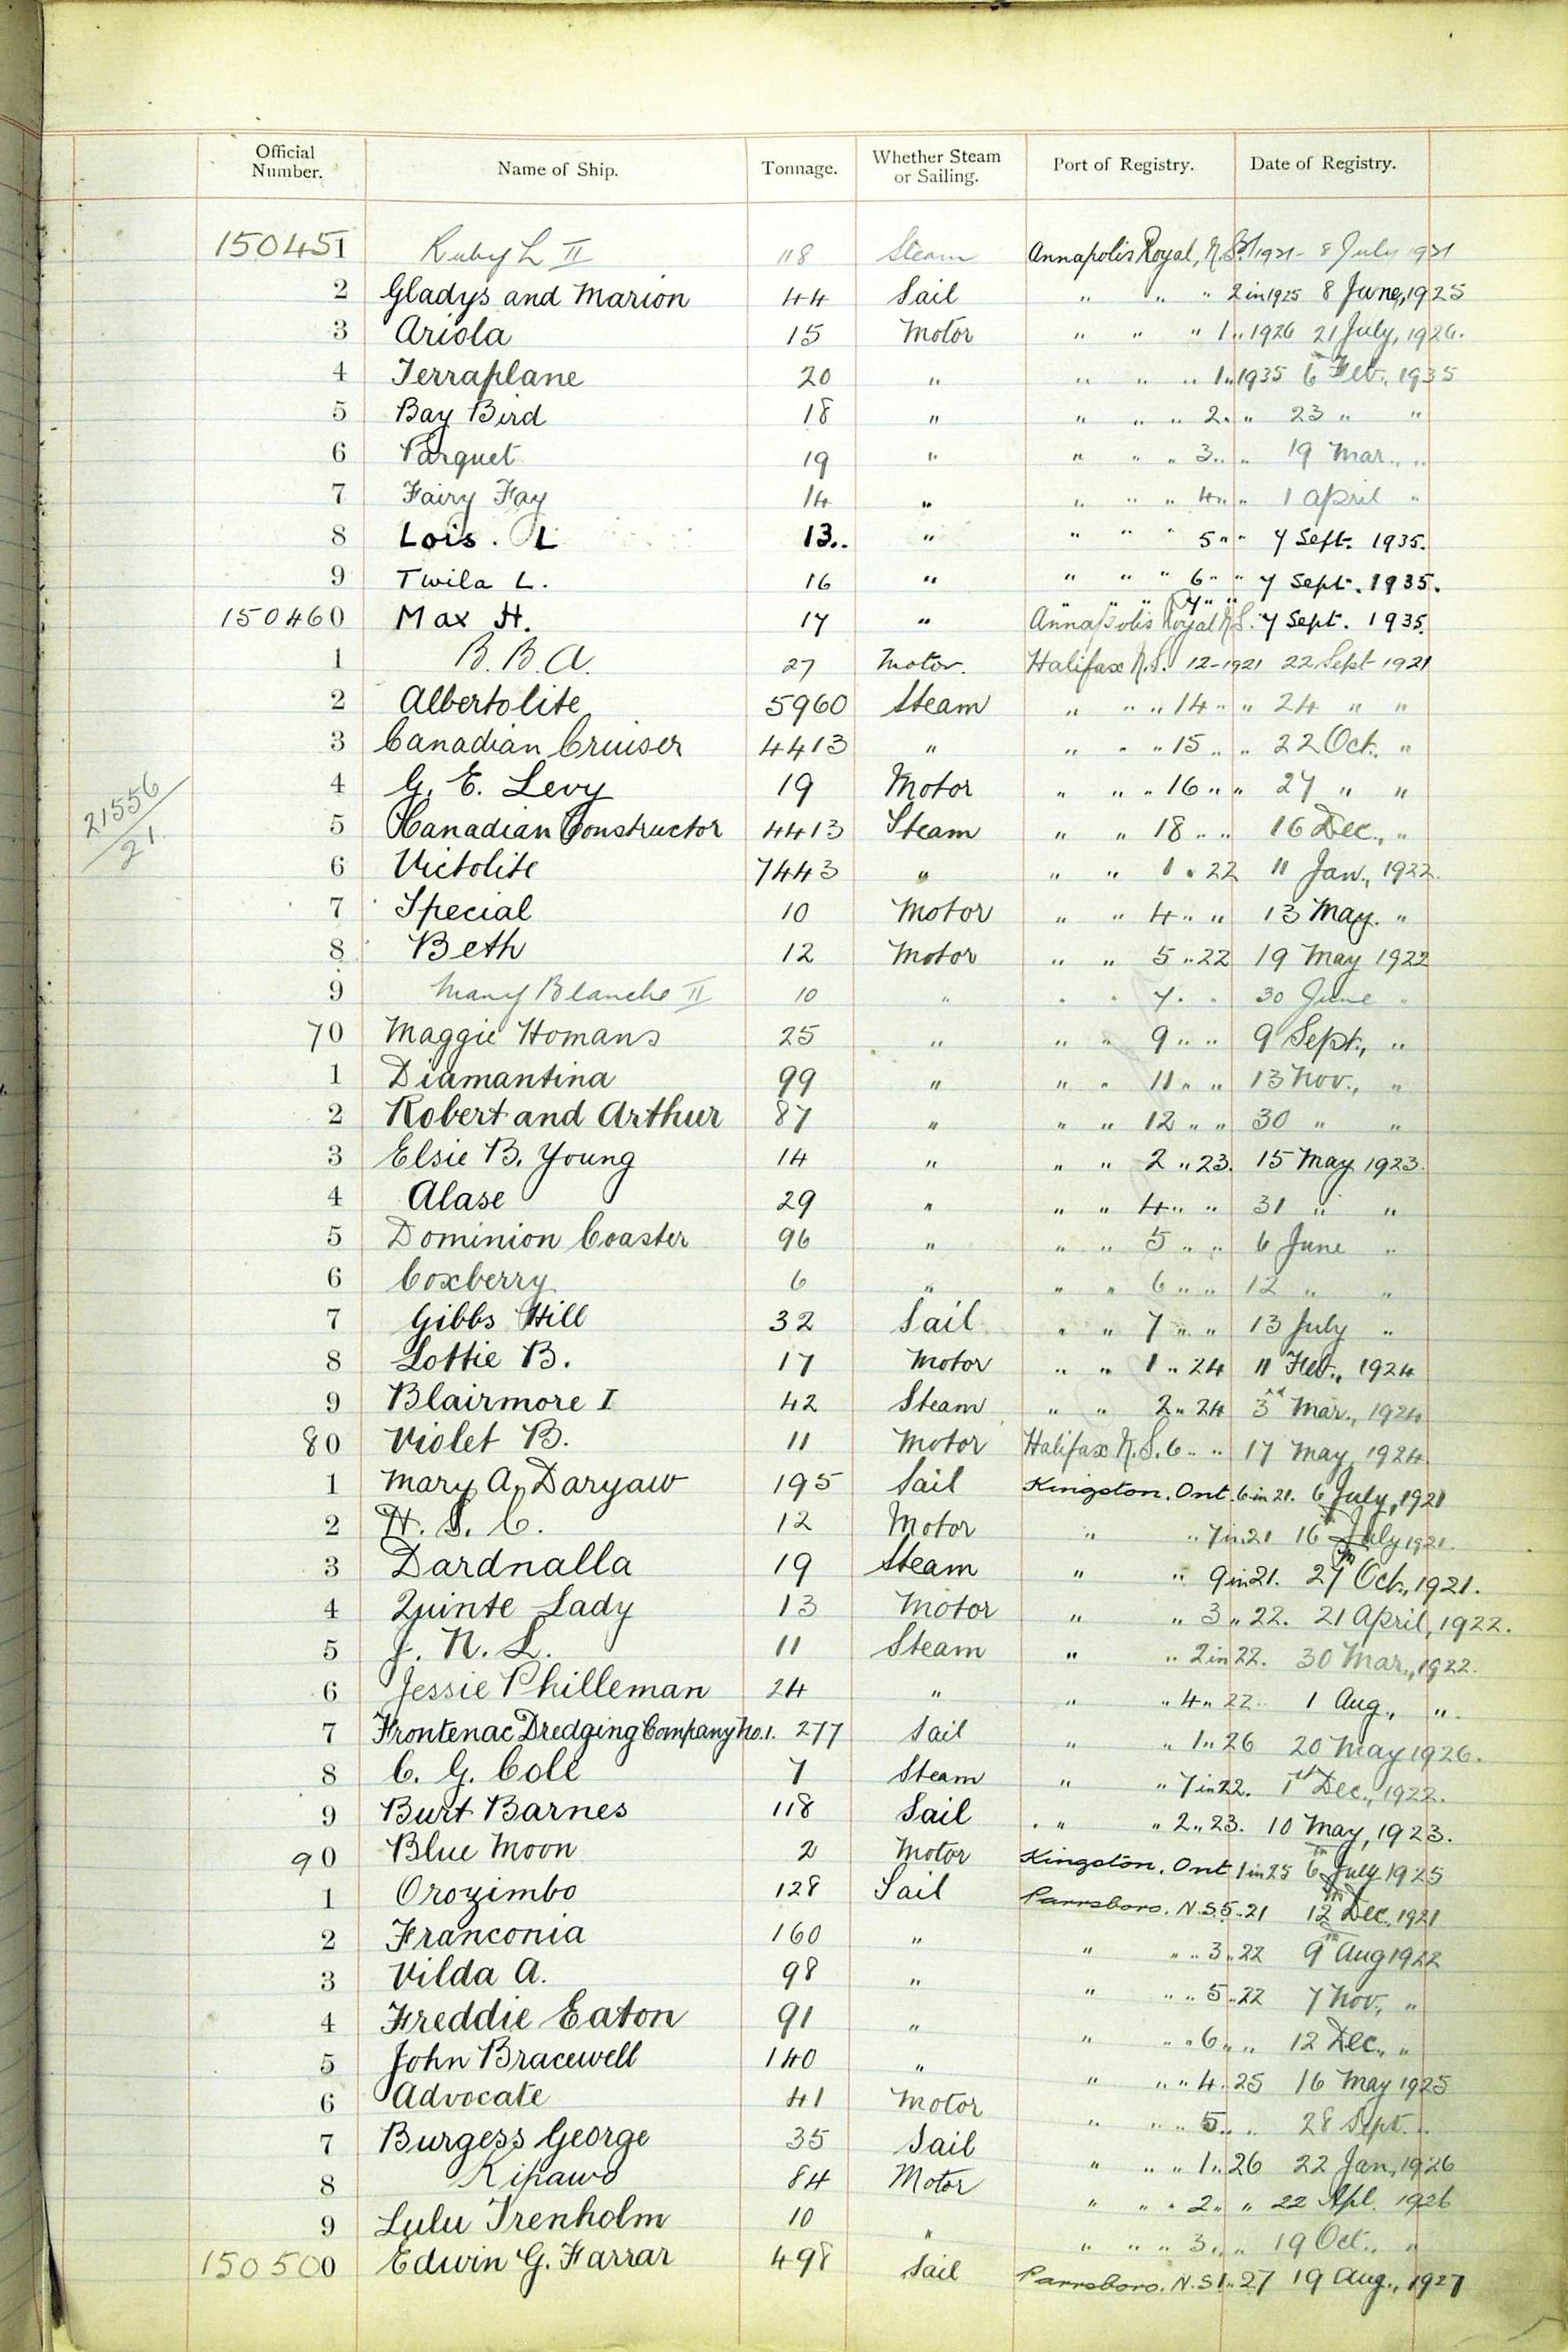 Official Number. Name of Ship. Tonnage. Whether Steam or Sailing. Port of Registry. Date of Registry.
150451 Ruby L II 118 Steam Annapolis Royal, N.S. 1/1921 - 8 July 1921
2 Gladys and Marion 44 Sail " " " 2 in 1925 8 June, 1925
3 Ariola 15 Motor " " " 1 " 1926 21 July, 1926.
4 Terraplane 20 " " " " 1 " 1935 6 Feb., 1935
5 Bay Bird 18 " " " " 2 " " 23 " "
6 Parquet 19 " " " " 3 " " 19 Mar., "
7 Fairy Fay 14 " " " " 4 " " 1 April "
8 Lois. L 13.. " " " " 5 " " 7 Sept. 1935.
9 Twila L. 16 " " " " 6 " " 7 Sept. 1935.
150460 Max H. 17 " " " " 7 " " Annapolis Royal N.S. 7 Sept. 1935.
1 B. B. A. 27 Motor. Halifax N.S. 12-1921 22 Sept 1921
2 Albertolite 5960 Steam " " " 14 " " 24 " "
3 Canadian Cruiser 4413 " " " " 15 " " 22 Oct., "
4 G. E. Levy 19 Motor " " " 16 " " 27 " "
21556/21.
5 Canadian Constructor 4413 Steam " " 18 " " 16 Dec., "
6 Victolite 7443 " " " 1 " 22 11 Jan., 1922.
7 Special 10 Motor " " 4 " " 13 May. "
8 Beth 12 Motor " " 5 " 22 19 May 1922
9 Mary Blanche II 10 " " " 7 " " 30 June "
70 Maggie Homans 25 " " " 9 " " 9 Sept., "
1 Diamantina 99 " " " 11 " " 13 Nov., "
2 Robert and Arthur 87 " " " 12 " " 30 " "
3 Elsie B. Young 14 " " " 2 " 23. 15 May 1923.
4 Alase 29 " " " 4 " " 31 " "
5 Dominion Coaster 96 " " " 5 " " 6 June "
6 Coxberry 6 " " " 6 " " 12 " "
7 Gibbs Hill 32 Sail " " 7 " " 13 July "
8 Lottie B. 17 Motor " " 1 " 24 11 Feb., 1924
9 Blairmore I 42 Steam " " 2 " 24 3rd Mar., 1924
80 Violet B. 11 Motor Halifax N.S. 6 " " 17 May, 1924.
1 Mary A. Daryaw 195 Sail Kingston, Ont. 6 in 21. 6 July, 1921
2 H. S. C. 12 Motor " " 7 in 21 16th July 1921.
3 Dardnalla 19 Steam " " 9 in 21. 27th Oct., 1921.
4 Quinte Lady 13 Motor " " 3 " 22. 21 April, 1922.
5 J. N. L. 11 Steam " " 2 in 22. 30 Mar., 1922.
6 Jessie Philleman 24 " " " 4 " 22 1 Aug., "
7 Frontenac Dredging Company No. 1. 277 Sail " " 1 " 26 20 May 1926.
8 C. G. Cole 7 Steam " " 7 in 22. 1st Dec., 1922.
9 Burt Barnes 118 Sail " " 2 " 23. 10 May, 1923.
90 Blue Moon 2 Motor Kingston, Ont 1 in 25 6th July 1925
1 Orozimbo 128 Sail Parrsboro. N.S. 5 " 21 12th Dec. 1921
2 Franconia 160 " " " " 3 " 22 9th Aug 1922
3 Vilda A. 98 " " " " 5 " 22 7 Nov., "
4 Freddie Eaton 91 " " " " 6 " " 12 Dec., "
5 John Bracewell 140 " " " " 4 " 25 16 May 1925
6 Advocate 41 Motor " " " 5 " " 28 Sept. "
7 Burgess George 35 Sail " " " 1 " 26 22 Jan, 1926
8 Kipawo 84 Motor " " " 2 " " 22 Apl. 1926
9 Lulu Trenholm 10 " " " " 3 " " 19 Oct., "
150500 Edwin G. Farrar 498 Sail Parrsboro. N.S. 1 " 27 19 Aug., 1927